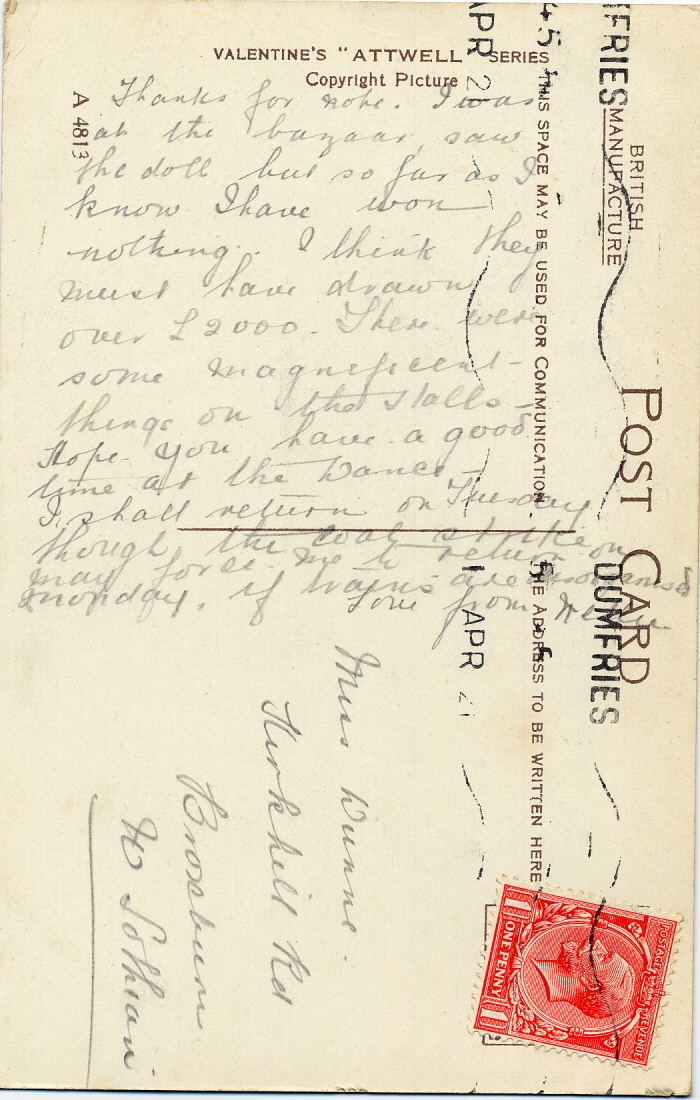 VALENTINE'S "ATTWELL" SERIES
Copyright Picture
A 4813
Thanks for note. I was
at the bazaar, saw
the doll but so far as I
know I have won
nothing. I think they
must have drawn
over £2000. There were
some magnificent
things on the stalls -
Hope you have a good
time at the Dance -
I shall return on Tuesday
though the coal strike on
may force me to return
monday, if trains are disorganised
Love from
BRITISH
MANUFACTURE
POST CARD
THIS SPACE MAY BE USED FOR COMMUNICATION
THE ADDRESS TO BE WRITTEN HERE
DUMFRIES
APR
DUMFRIES
APR 21
Miss Dunne.
Kirkhill Rd
Broxburn
W Lothian
POSTAGE REVENUE
1 ONE PENNY 1